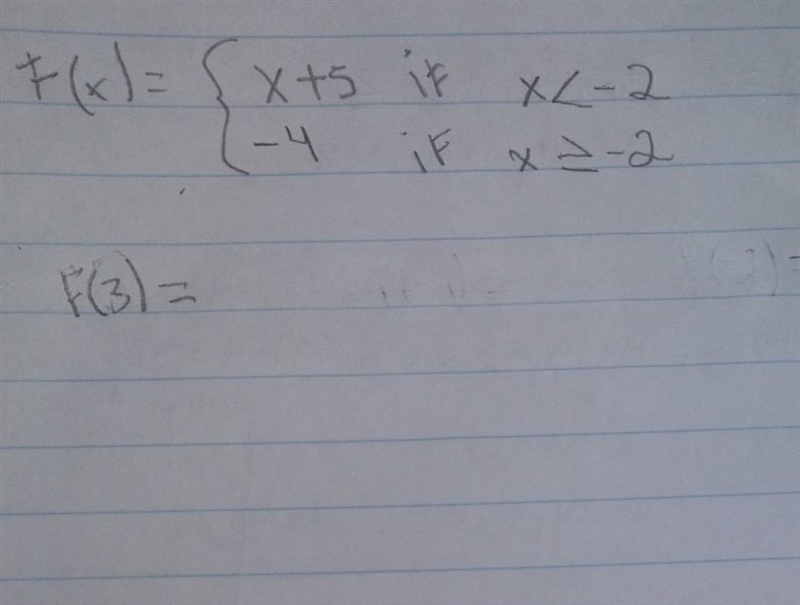 F(x) = { x+5 if x<-2
-4 if x ≥ -2
F(3) =